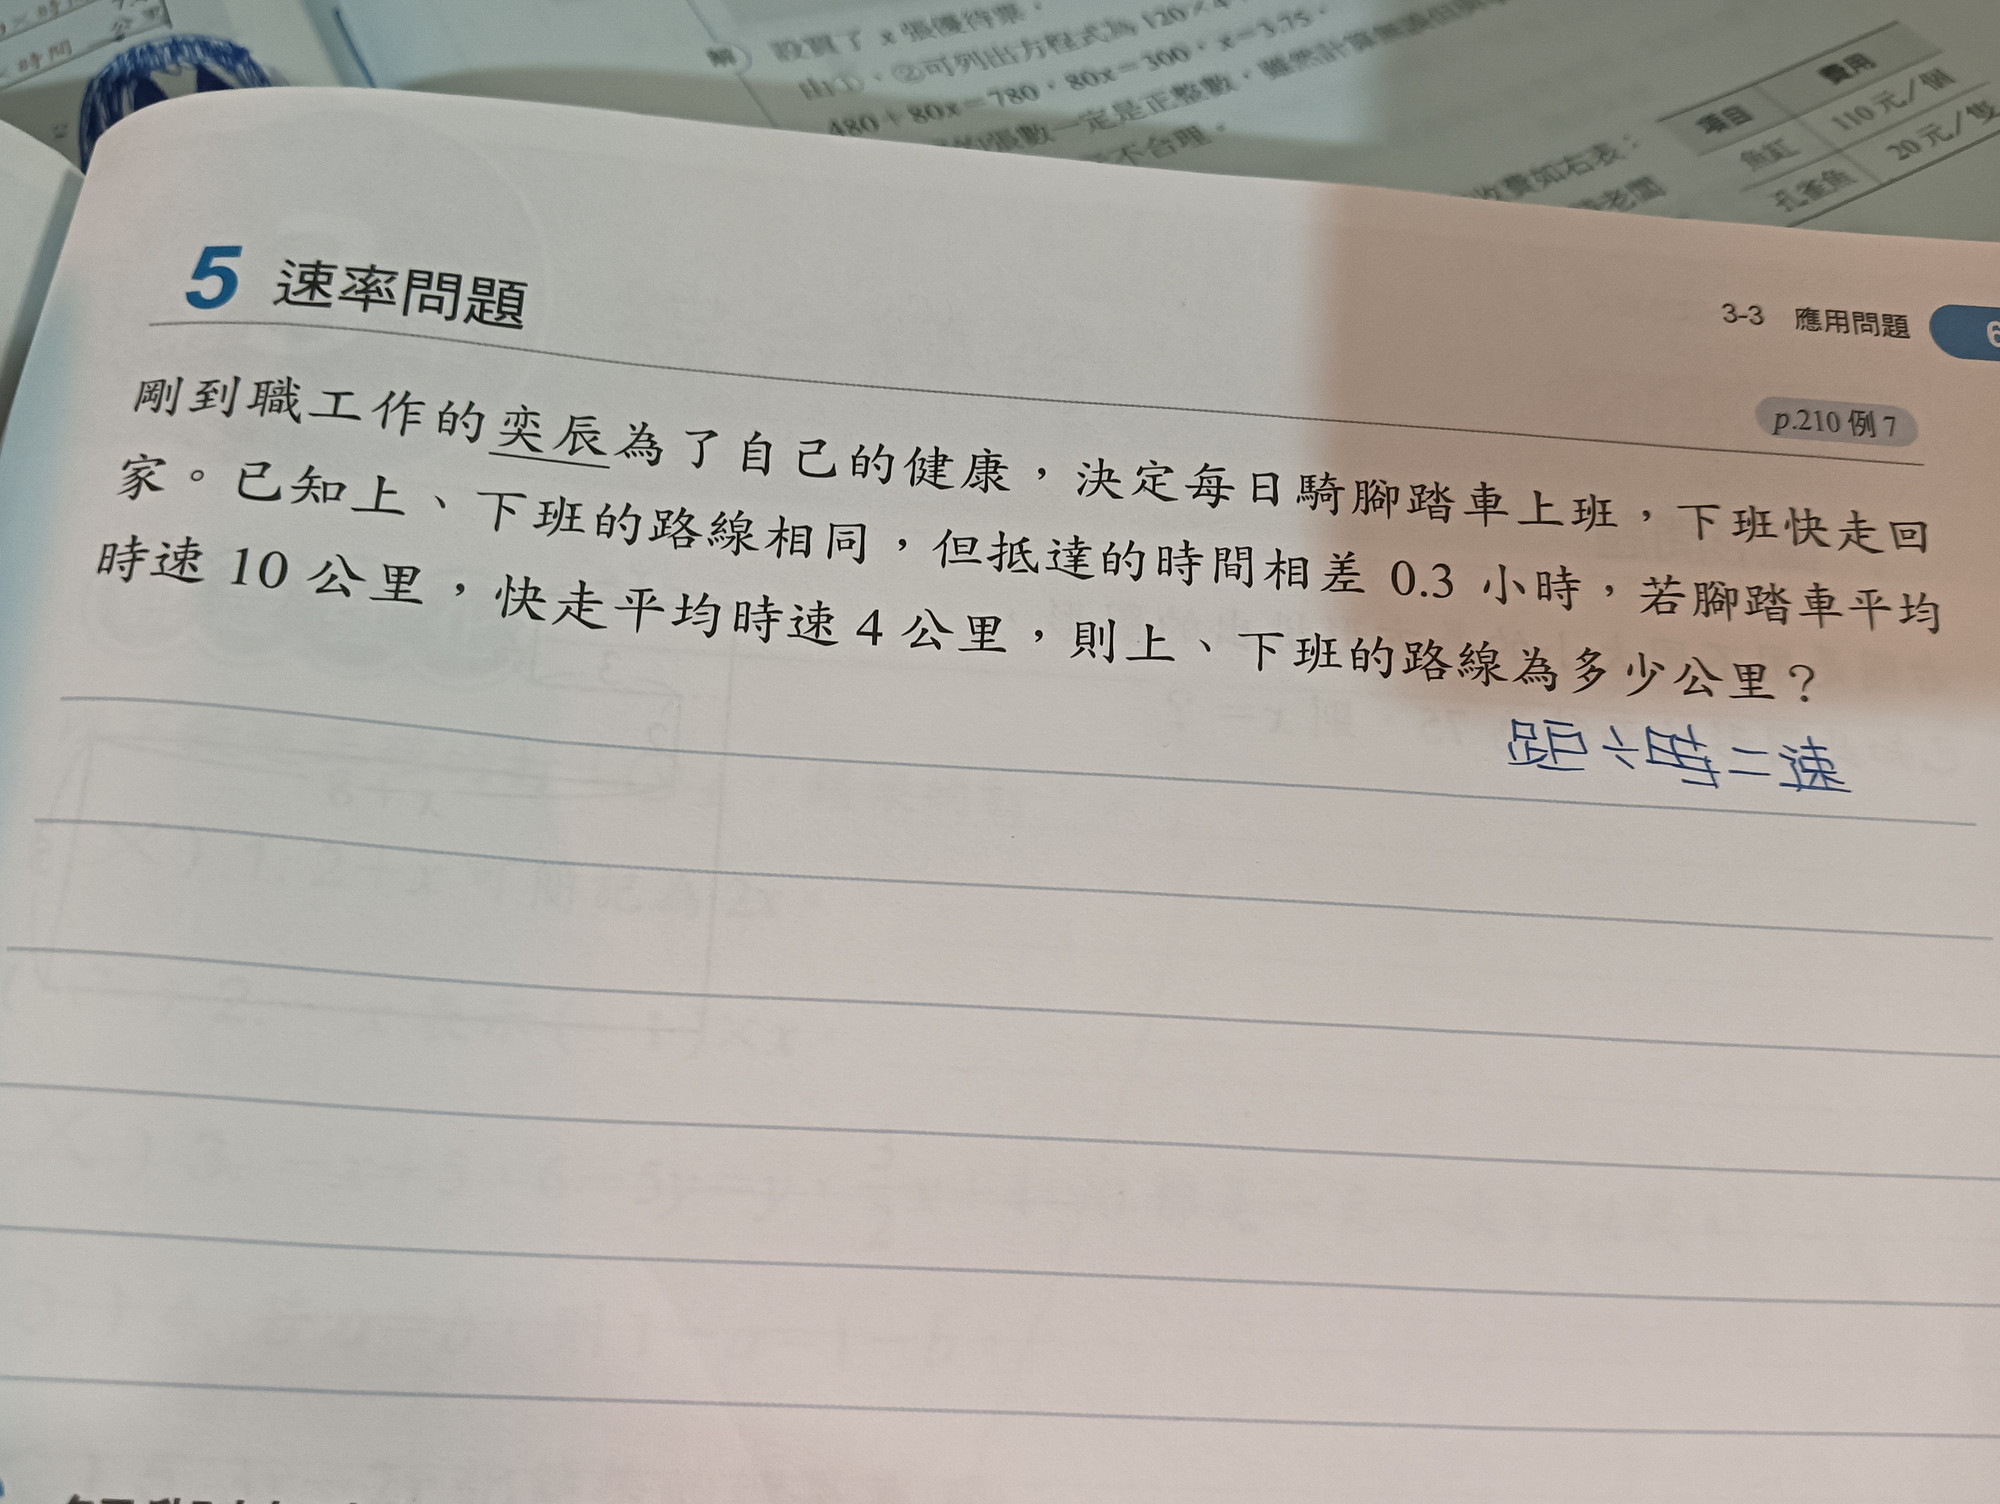 時間
公里
解 設買了 x 張優待票。
由①、②可列出方程式為 120×4
480+80x=780,80x=300,x=3.75。
張數一定是正整數,雖然計算無誤但
不合理。
收費如右表:
老闆
項目 費用
魚缸 110 元/個
孔雀魚 20 元/隻
5 速率問題
3-3 應用問題 6
p.210 例 7
剛到職工作的奕辰為了自己的健康,決定每日騎腳踏車上班,下班快走回
家。已知上、下班的路線相同,但抵達的時間相差 0.3 小時,若腳踏車平均
時速 10 公里,快走平均時速 4 公里,則上、下班的路線為多少公里?
距÷時=速